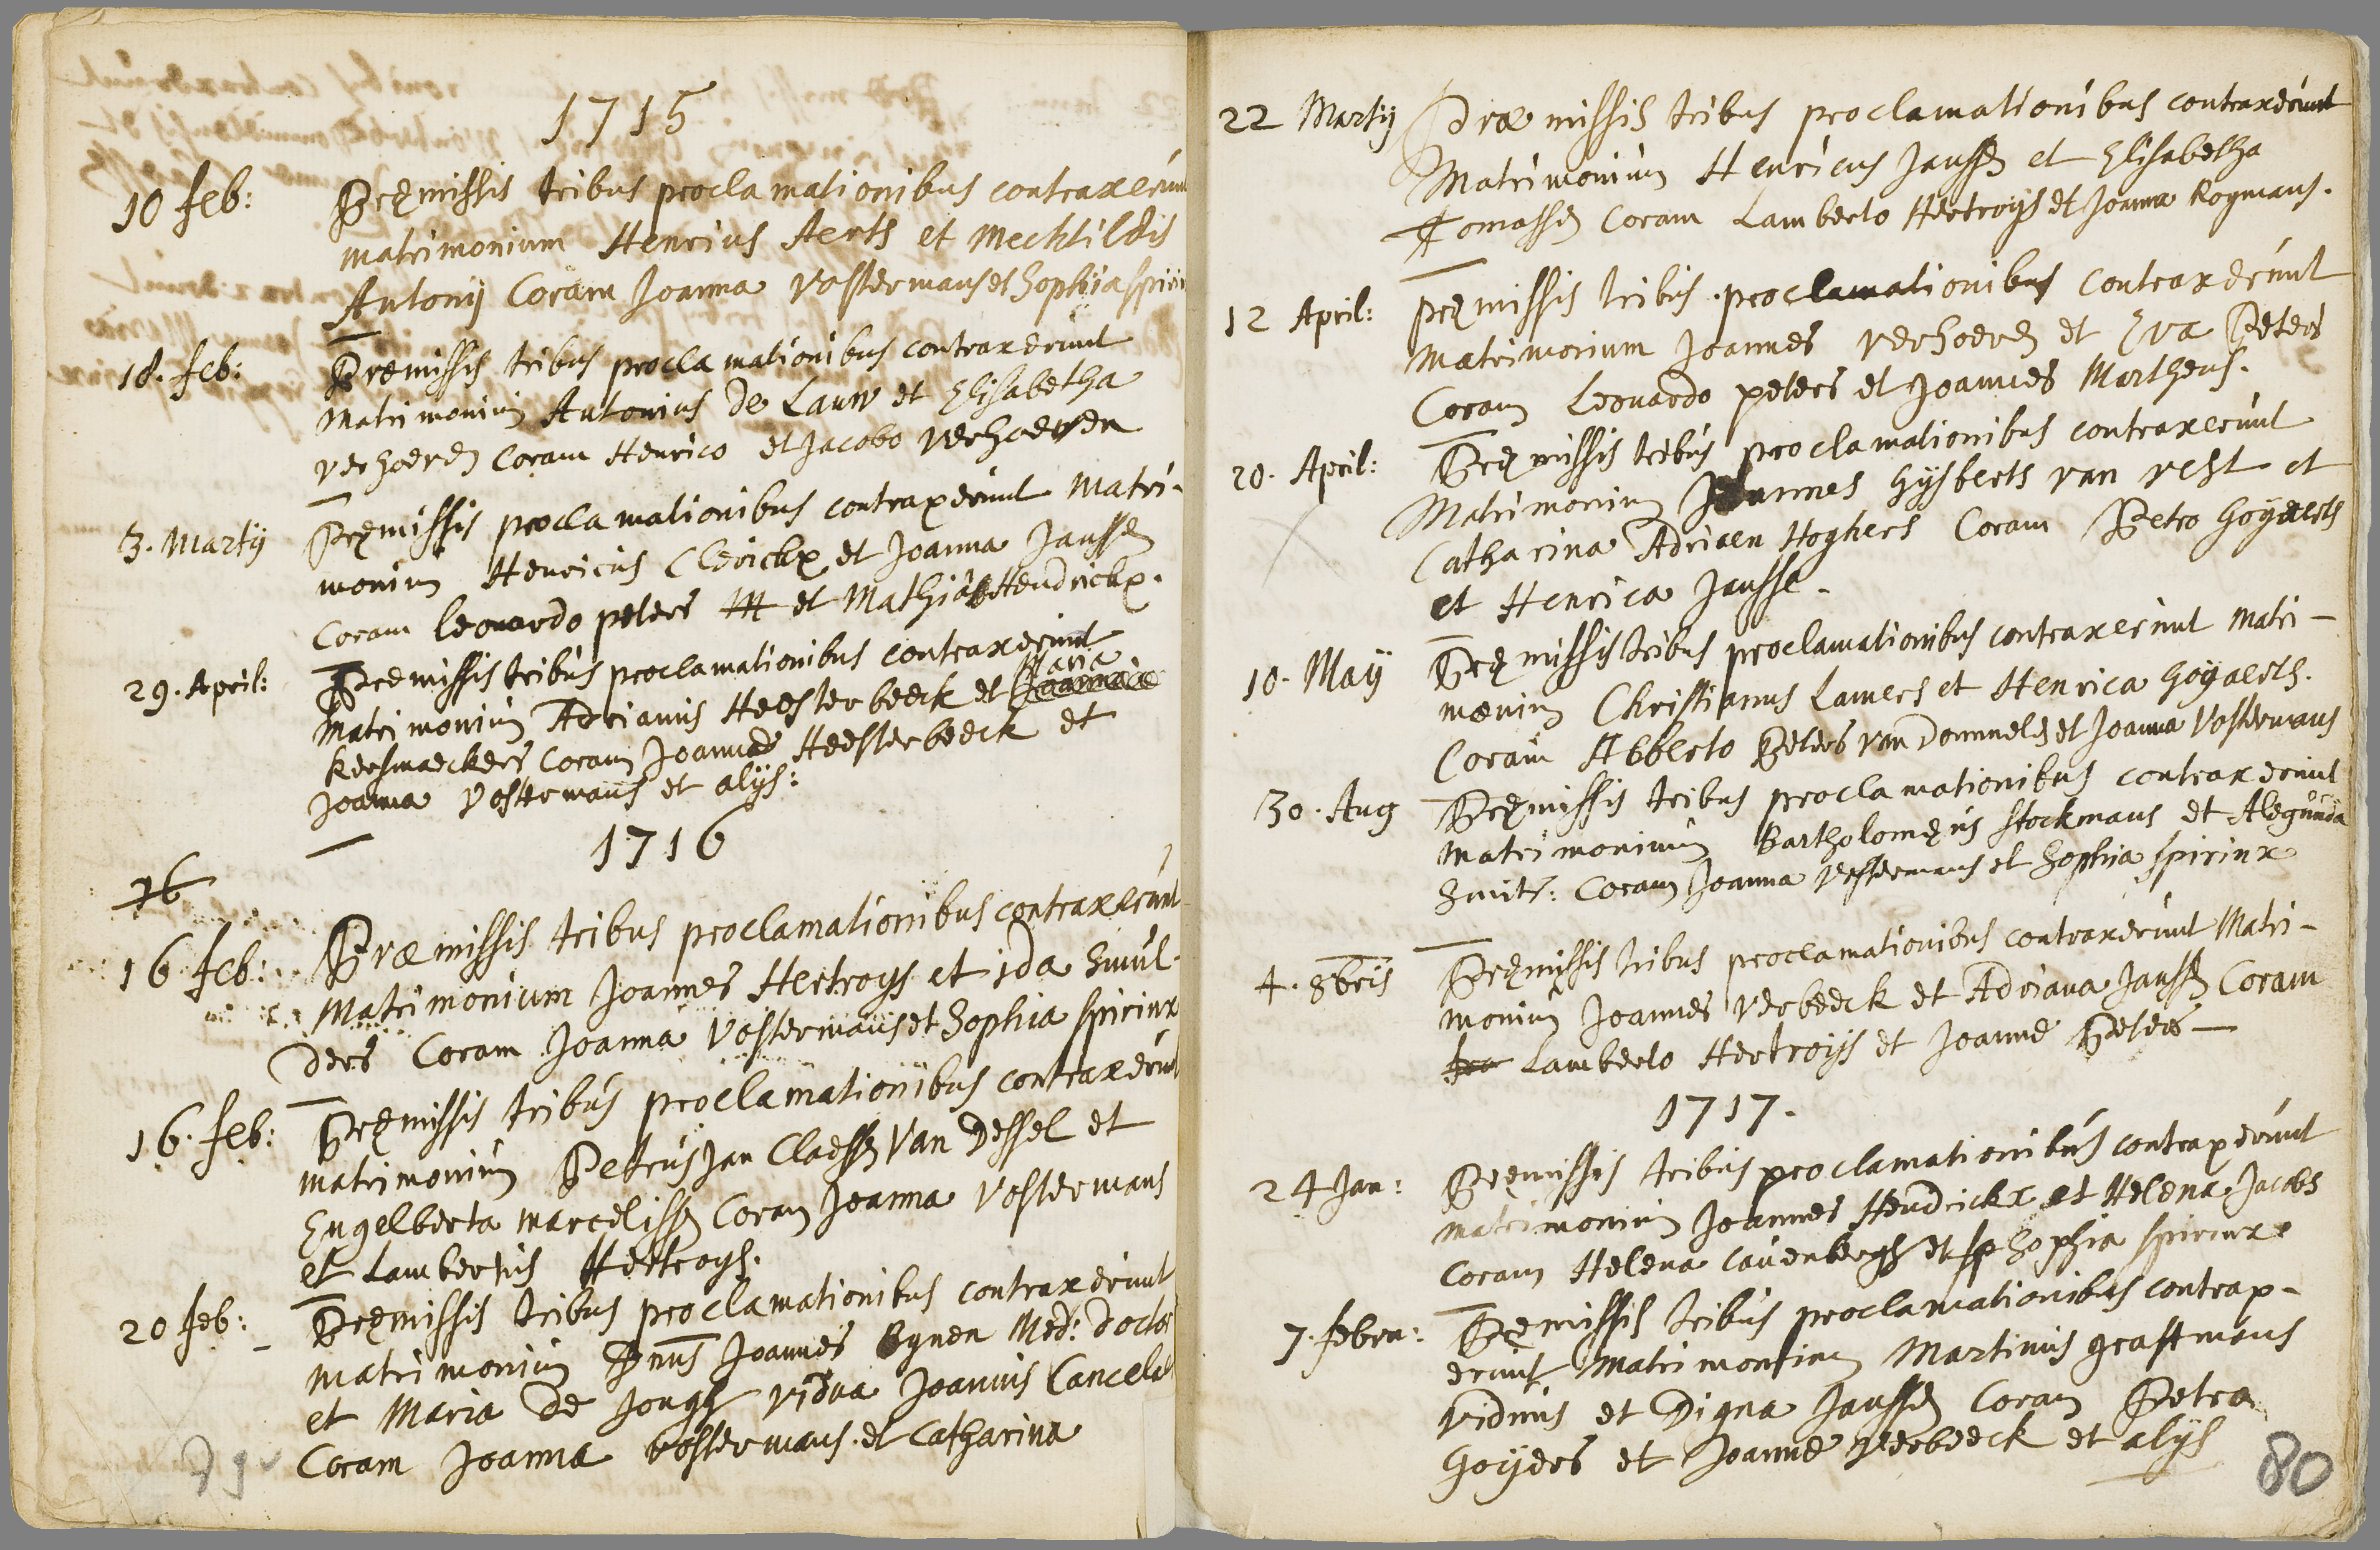 1715
10 feb: Pręmissis tribus proclamationibus contraxerun
matrimonium Henrius Aerts et Mechtildis
Antonij Coram Joanna Vostermans et Sophia spirin
18. feb: Præmissis tribus proclamationibus contraxerunt
Matrimoniũ Antonius de Lauw et Elisabetha
verhoeven Coram Henrico et Jacobo verhoeven
3. Martij Pręmissis proclamationibus contraxerunt Matri-
monium Henricus Clerickx et Joanna Janssen
Coram Leonardo peters et Mathia Hendrickx.
29. April: Præmissis tribus proclamationibus contraxerunt
Maria
Matrimonium Adrianus Heesterbeeck et
kersmaeckers Coram Joanne Heesterbeeck et
Joanna Vostermans et alijs:
1716
16
16 feb: Præmissis tribus proclamationibus contraxerunt
Matrimonium Joannes Hertroys et ida Smul-
ders Coram Joanna Vostermans et Sophia spirinx
16. feb: Pręmissis tribus proclamationibus contraxerunt
matrimonium Petrus Jan Claessen Van Dessel et
Engelberta marcelissen Coram Joanna Vostermans
et Lambertus Hertroys.
20 feb: Pręmissis tribus proclamationibus contraxerunt
matrimonium Dnus Joannes Bynen Med: doctor
et Maria de Jongh vidua Joannis Cancele
Coram Joanna vostermans et Catharina
79v
22 Martij Præmissis tribus proclamationibus contraxerunt
Matrimonium Henricus Janssen et Elisabetha
Tomassen Coram Lamberto Hertroys et Joanna Rogmans.
12 April: pręmissis tribus proclamationibus contraxerunt
Matrimonium Joannes verhoeven et Eva Peters
Coram Leonardo peters et Joannes Martheus.
20. April: Pręmissis tribus proclamationibus contraxerunt
Matrimonium Joannes Gysberts van vest et
Catharina Adriaen Hoghers Coram Petro Goyaerts
et Henrica Jansse.
10. Maij Pręmissis tribus proclamationibus contraxerunt Matri-
monium Christianus Lamers et Henrica Goyaerts.
Coram Abberto Peters van Dommelen et Joanna Vostermans
30. Aug Pręmissis tribus proclamationibus contraxerunt
matrimonium Bartholomęus Stockmans et Alegunda
Smits: Coram Joanna vostermans et Sophia spirinx
4. 8bris Pręmissis tribus proclamationibus contraxerunt Matri-
monium Joannes Verbeeck et Adriana Janssen Coram
Lamberto Hertroijs et Joanne Peters
1717.
24 Jan: Pręmissis tribus proclamationibus contraxerunt
matrimonium Joannes Hendrickx et Helena Jacobs
Coram Helena Cauenbergh et sp Sophia spirinx
7. febru: Pręmissis tribus proclamationibus contrax-
erunt Matrimonium Martinus grastmans
viduus et Digna Janssen Coram Petra
Goijders et Joanne Verbeeck et alijs
80